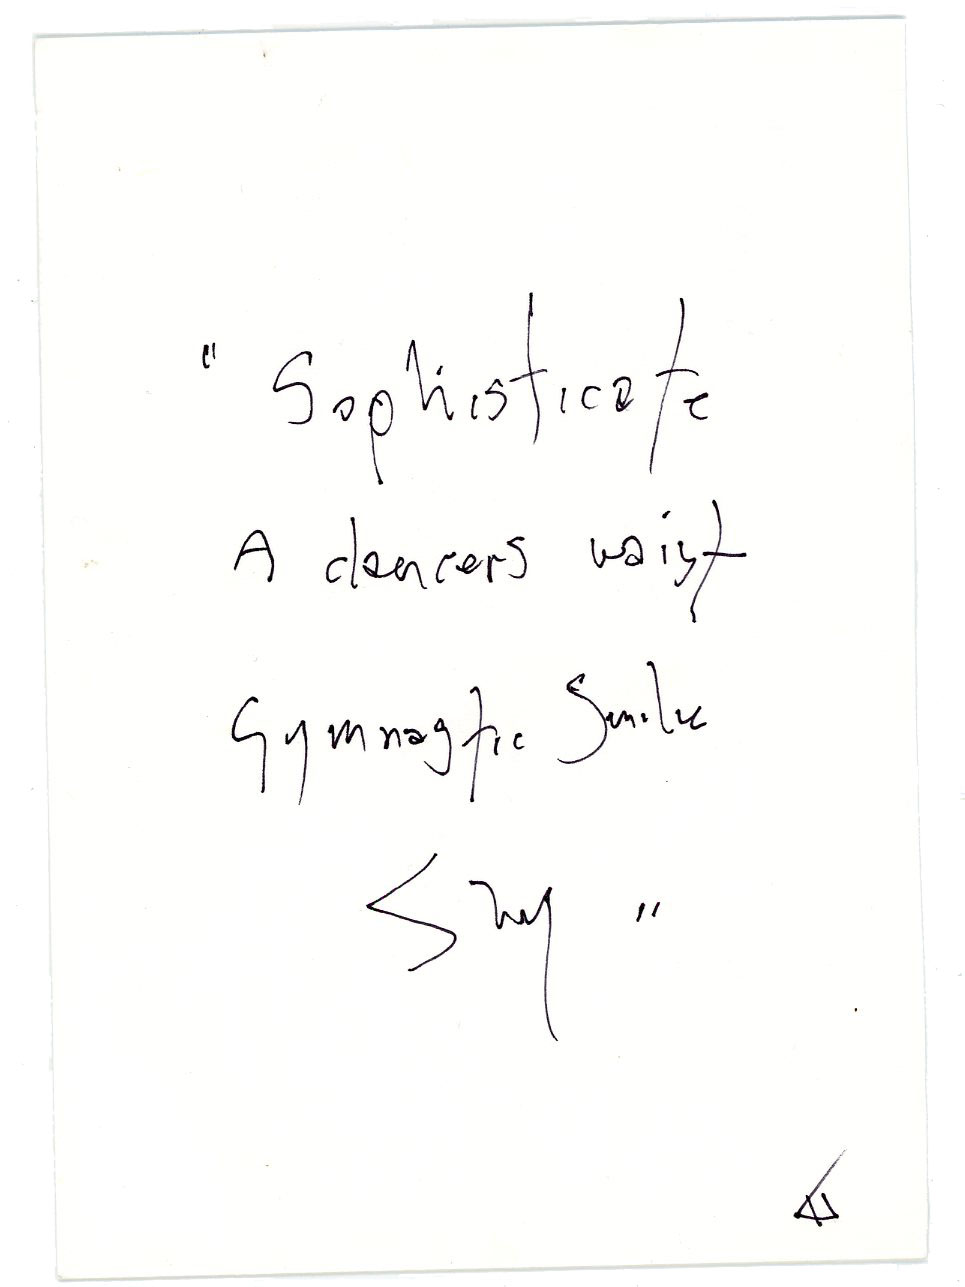 " Sophisticate
A dancers waist
Gymnastic Smile
Shy "